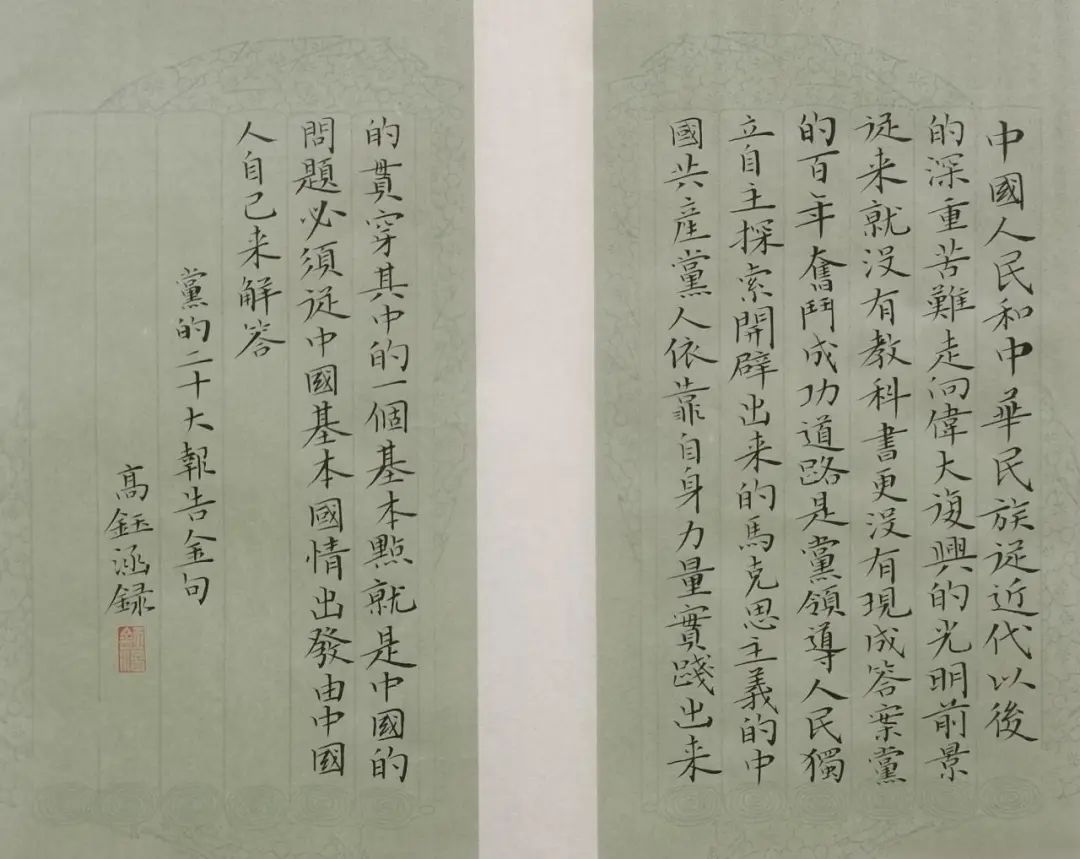 中國人民和中華民族従近代以後
的深重苦難走向偉大復興的光明前景
従来就没有教科書更没有現成答案黨
的百年奮鬥成功道路是黨領導人民獨
立自主探索開辟出来的馬克思主義的中
國共產黨人依靠自身力量實踐出来
的貫穿其中的一個基本點就是中國的
問題必須従中國基本國情出發由中國
人自己来解答
黨的二十大報告金句
高鈺涵録